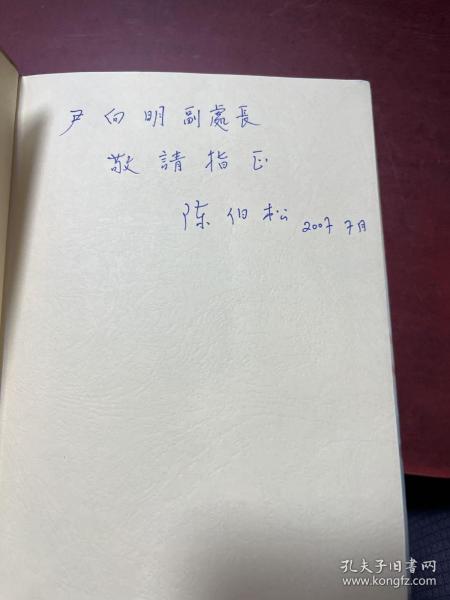 尹向明副處長
敬請指正
陈伯松 2007 7月
孔夫子旧书网
www.kongfz.com